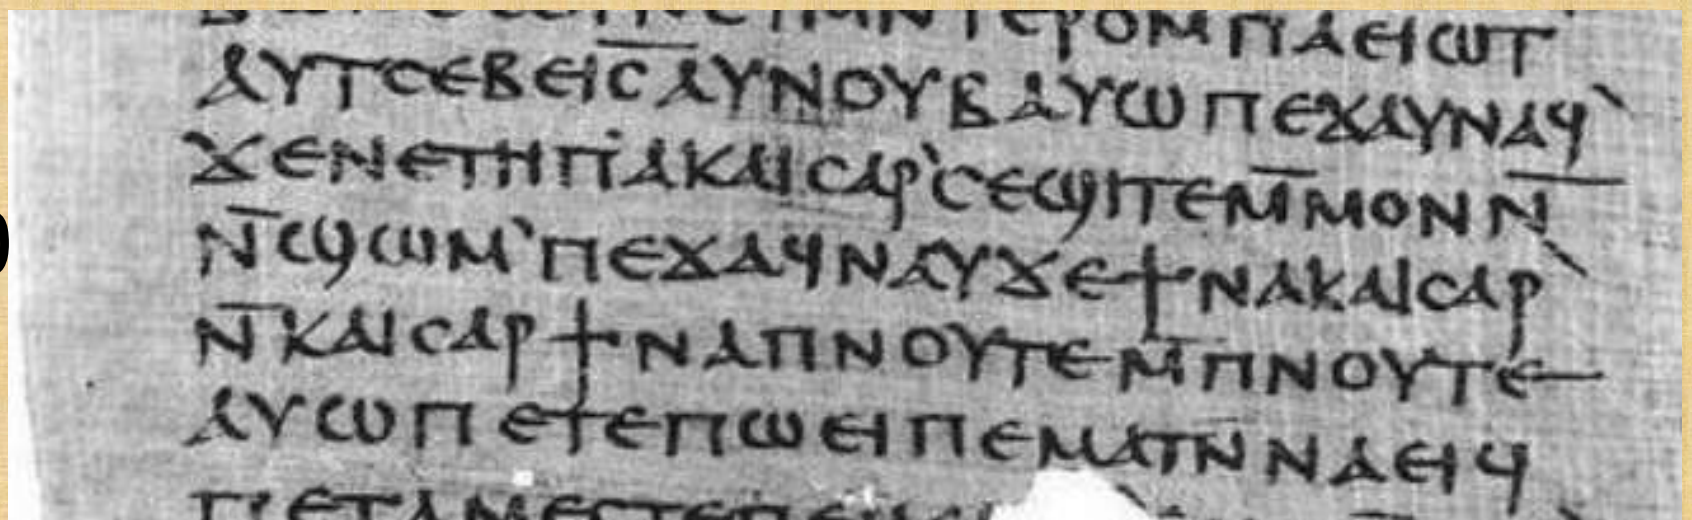 ⲧⲉⲣⲟⲙⲡⲁⲉⲓⲱⲧ
ⲁⲩⲧⲥⲉⲃⲉⲓ̅ⲥ̅ⲁⲩⲛⲟⲩⲃⲁⲩⲱⲡⲉϫⲁⲩⲛⲁϥ`
ϫⲉⲛⲉⲧⲏⲡⲁⲕⲁⲓⲥⲁⲣ`ⲥⲉϣⲓⲧⲉⲙ̅ⲙⲟⲛⲛ̅
ⲛ̅ϣⲱⲙ`ⲡⲉϫⲁϥⲛⲁⲩϫⲉϯⲛⲁⲕⲁⲓⲥⲁⲣ`
ⲛ̅ⲕⲁⲓⲥⲁⲣϯⲛⲁⲡⲛⲟⲩⲧⲉⲙ̅ⲡⲛⲟⲩⲧⲉ
ⲁⲩⲱⲡⲉⲧⲉⲡⲱⲉⲓⲡⲉⲙⲁⲧⲛ̅ⲛⲁⲉⲓϥ
ⲡⲉⲧⲁⲙⲉⲥⲧⲉⲡⲉ